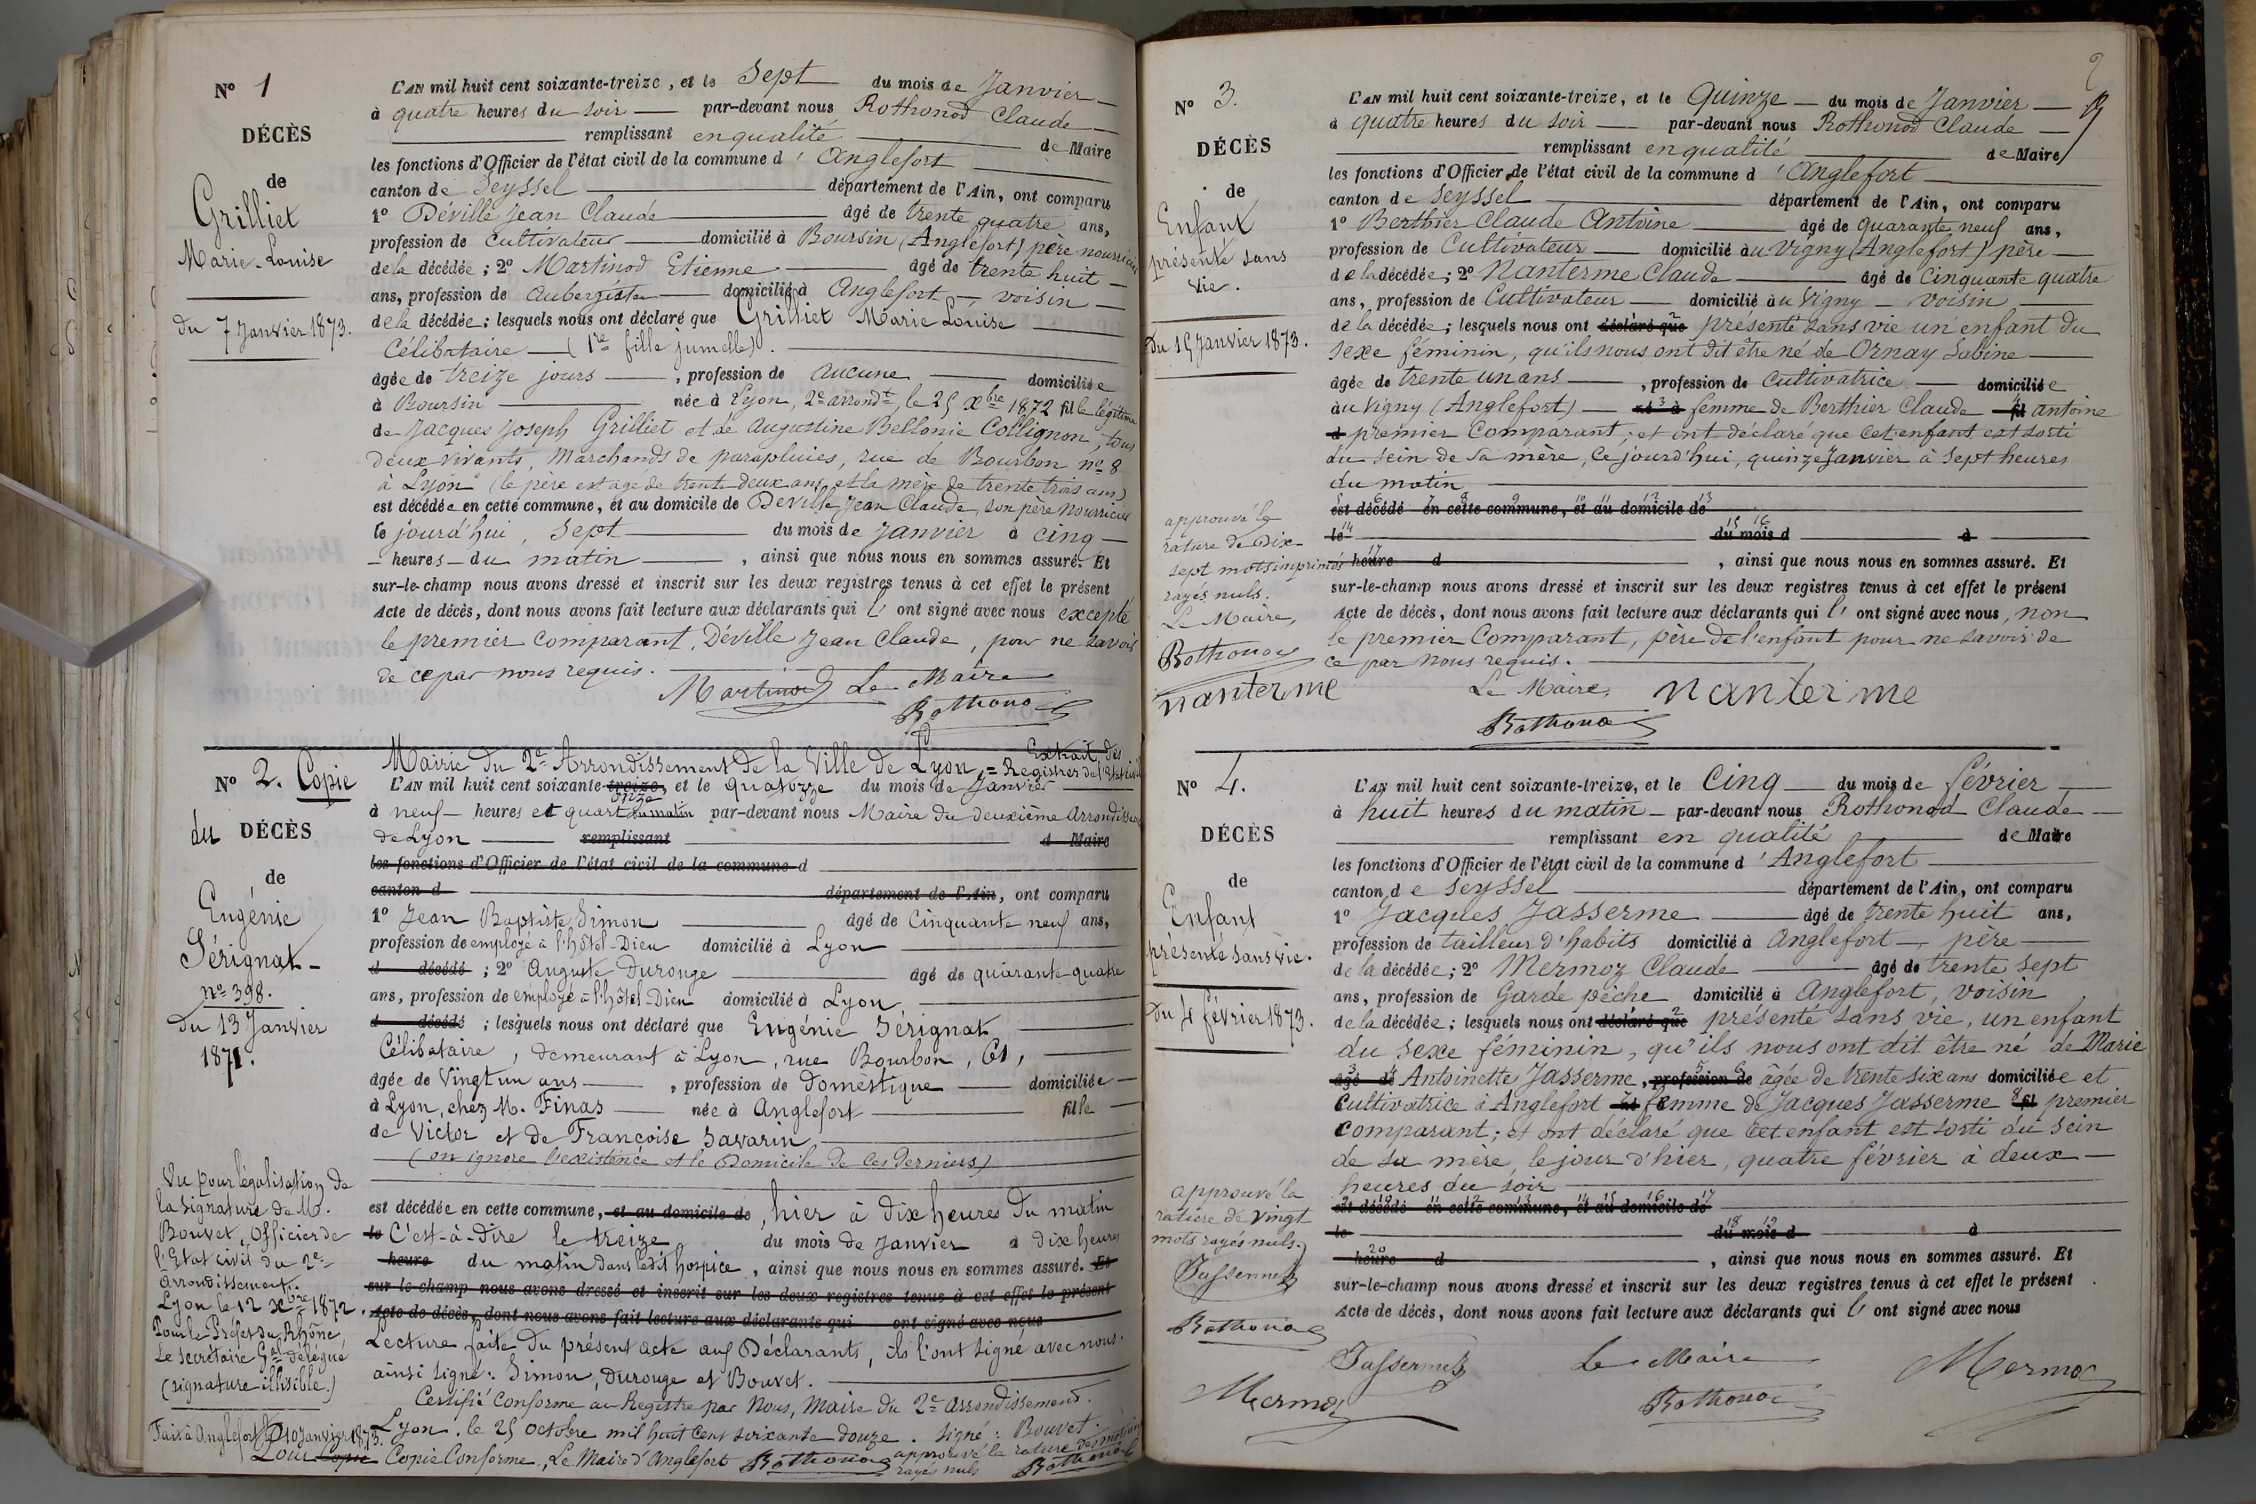 Nº 1
DÉCÈS
de
Grilliet
Marie-Louise
du 7 Janvier 1873.
L'AN mil huit cent soixante-treize, et le Sept du mois de Janvier
à quatre heures du soir par-devant nous Rothonod Claude
remplissant en qualité de Maire
les fonctions d'Officier de l'état civil de la commune d'Anglefort
canton de Seyssel département de l'Ain, ont comparu
1º Déville Jean Claude âgé de trente quatre ans,
profession de cultivateur domicilié à Boursin (Anglefort) père nourricier
de la décédée; 2º Martinod Etienne âgé de trente huit
ans, profession de aubergiste domicilié à Anglefort, voisin
de la décédée; lesquels nous ont déclaré que Grilliet Marie Louise
Célibataire (1re fille jumelle).
âgée de treize jours, profession de aucune domiciliée
à Boursin née à Lyon, 2e arrondt, le 25 Xbre 1872 fille légitime
de Jacques Joseph Grilliet et de Augustine Bellonie Collignon, tous
deux vivants, Marchands de parapluies, rue de Bourbon nº 8
à Lyon (le père est âgé de trente-deux ans et la mère de trente trois ans)
est décédée en cette commune, et au domicile de Déville Jean Claude, son père nourricier
le jourd'hui, Sept du mois de Janvier à cinq
heures du matin, ainsi que nous nous en sommes assuré. Et
sur-le-champ nous avons dressé et inscrit sur les deux registres tenus à cet effet le présent
Acte de décès, dont nous avons fait lecture aux déclarants qui l'ont signé avec nous excepté
le premier comparant, Déville Jean Claude, pour ne savoir
de ce par nous requis.
Martinod Le Maire
Rothonod
Nº 2. Copie
du DÉCÈS
de
Eugénie
Sérignat
nº 398.
du 13 Janvier
1871.
Mairie du 2e Arrondissement de la Ville de Lyon = Extrait des
Registres de l'Etat Civil
L'AN mil huit cent soixante-treize, et le quatorze du mois de Janvier
onze
à neuf heures et quart du matin par-devant nous Maire du deuxième Arrondissement
de Lyon remplissant d Maire
les fonctions d'Officier de l'état civil de la commune d
canton d département de l'Ain, ont comparu
1º Jean Baptiste Simon âgé de Cinquante neuf ans,
profession de employé à l'hôtel-Dieu domicilié à Lyon
d décédé; 2º Auguste Durouge âgé de quarante-quatre
ans, profession de employé à l'hôtel-Dieu domicilié à Lyon
d décédé; lesquels nous ont déclaré que Eugénie Sérignat
Célibataire, demeurant à Lyon, rue Bourbon, 61,
âgée de Vingt un ans, profession de Domestique domiciliée
à Lyon, chez M. Finas née à Anglefort fille
de Victor et de Françoise Savarin
(on ignore l'existence et le Domicile de ces derniers)
est décédée en cette commune, et au domicile de, hier à dix heures du matin
le C'est-à-dire le treize du mois de Janvier à dix heures
heure du matin dans ledit hospice, ainsi que nous nous en sommes assuré. Et
sur-le-champ nous avons dressé et inscrit sur les deux registres tenus à cet effet le présent
Acte de décès, dont nous avons fait lecture aux déclarants qui ont signé avec nous
Lecture faite du présent acte aux Déclarants, ils l'ont signé avec nous.
ainsi signé: Simon, Durouge et Bouvet.
Certifié Conforme au Registre par Nous, Maire du 2e arrondissement.
Lyon, le 25 octobre mil huit cent soixante-douze. signé: Bouvet.
Vu pour légalisation de
la signature de M.
Bouvet, Officier de
l'Etat civil du 2e
Arrondissement.
Lyon le 12 Xbre 1872.
Pour le Préfet du Rhône,
Le Secrétaire Gal délégué
(signature illisible.)
Fait à Anglefort le 10 Janvier 1873.
Pour copie Copie Conforme, Le Maire d'Anglefort Rothonod
approuvé la rature des mots
rayés nuls Rothonod
2
Nº 3.
DÉCÈS
de
Enfant
présenté sans
vie.
Du 15 Janvier 1873.
L'AN mil huit cent soixante-treize, et le Quinze du mois de Janvier
à quatre heures du soir par-devant nous Rothonod Claude
remplissant en qualité de Maire
les fonctions d'Officier de l'état civil de la commune d'Anglefort
canton de Seyssel département de l'Ain, ont comparu
1º Berthier Claude Antoine âgé de quarante neuf ans,
profession de Cultivateur domicilié au Vigny (Anglefort) père
de la décédée; 2º Nanterme Claude âgé de Cinquante quatre
ans, profession de Cultivateur domicilié au Vigny voisin
de la décédée; lesquels nous ont déclaré que présenté sans vie un enfant du
sexe féminin, qu'ils nous ont dit être né de Ornay Sabine
âgée de trente un ans, profession de Cultivatrice domiciliée
au Vigny (Anglefort) et à femme de Berthier Claude fil antoine
d premier Comparant; et ont déclaré que cet enfant est sorti
du sein de sa mère, ce jourd'hui, quinze Janvier à sept heures
du matin
est décédé en cette commune, et au domicile de
le du mois d à
heure d, ainsi que nous nous en sommes assuré. Et
sur-le-champ nous avons dressé et inscrit sur les deux registres tenus à cet effet le présent
Acte de décès, dont nous avons fait lecture aux déclarants qui l'ont signé avec nous, non
le premier Comparant, père de l'enfant pour ne savoir de
ce par nous requis.
approuvé la
rature de Dix-
sept mots imprimés
rayés nuls.
Le Maire,
Rothonod
nanterme
Le Maire, nanterme
Rothonod
Nº 4.
DÉCÈS
de
Enfant
présenté sans vie.
Du 4 février 1873.
L'AN mil huit cent soixante-treize, et le Cinq du mois de février
à huit heures du matin par-devant nous Rothonod Claude
remplissant en qualité de Maire
les fonctions d'Officier de l'état civil de la commune d'Anglefort
canton de Seyssel département de l'Ain, ont comparu
1º Jacques Jasserme âgé de trente huit ans,
profession de tailleur d'habits domicilié à Anglefort, père
de la décédée; 2º Mermoz Claude âgé de trente sept
ans, profession de Garde pêche domicilié à Anglefort, voisin
de la décédée; lesquels nous ont déclaré que présenté sans vie, un enfant
du sexe féminin, qu'ils nous ont dit être né de Marie
âgé de Antoinette Jasserme, profession de âgée de trente six ans domiciliée et
cultivatrice à Anglefort et femme de Jacques Jasserme fil premier
comparant; et ont déclaré que cet enfant est sorti du sein
de sa mère, le jour d'hier, quatre février à deux
heures du soir
est décédé en cette commune, et au domicile de
le du mois d à
heure d, ainsi que nous nous en sommes assuré. Et
sur-le-champ nous avons dressé et inscrit sur les deux registres tenus à cet effet le présent
Acte de décès, dont nous avons fait lecture aux déclarants qui l'ont signé avec nous
approuvé la
rature de vingt
mots rayés nuls.
Jasserme
Rothonod
Mermoz
Jasserme Le Maire Mermoz
Rothonod